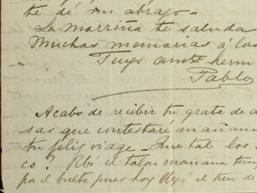 te dé un abrazo.
La marriña te saluda
Muchas memorias á los
Tuyo amte herm
Pablo
Acabo de recibir tu grata de a
sas que contestaré mañana
tu feliz viage. Que tal los
co? Rbí el talon mañana
por el bulto pues hoy llegó el tren de